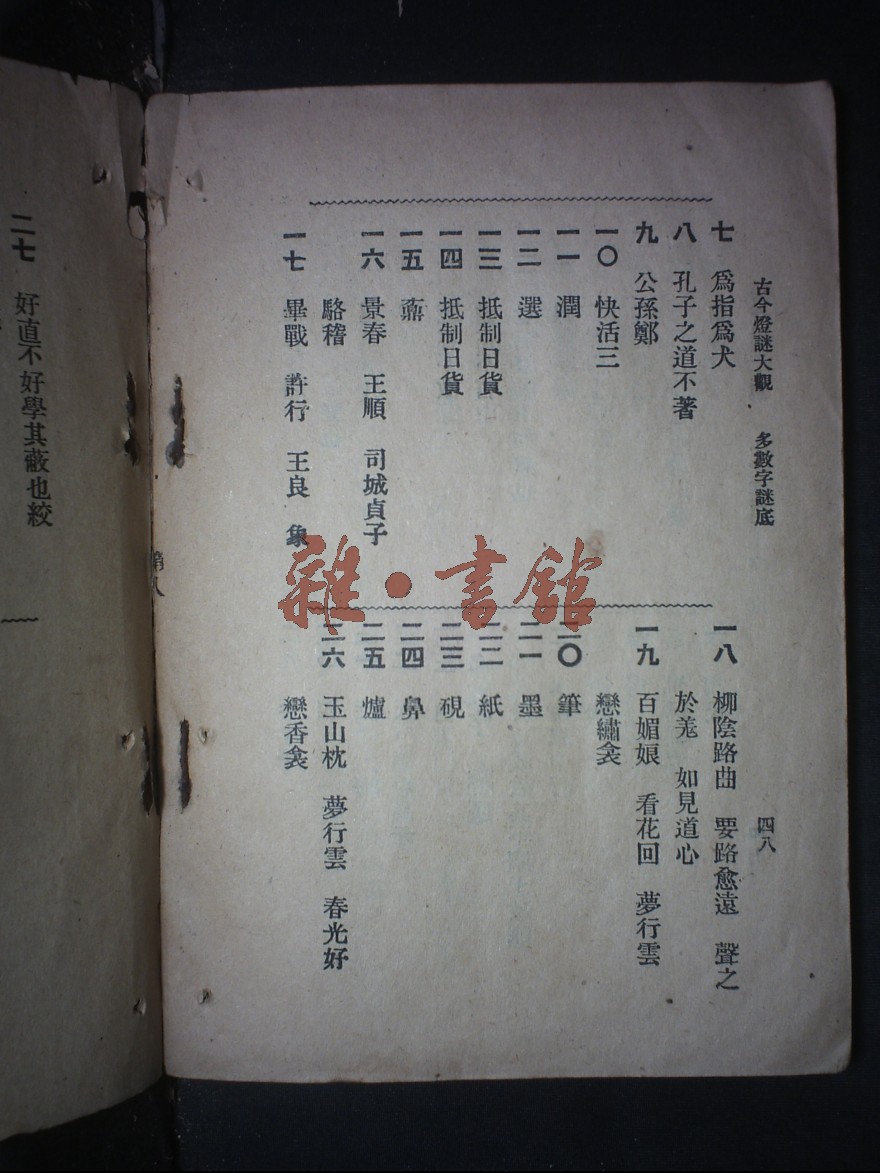 古今燈謎大觀　多數字謎底　四八
七　爲指爲犬
八　孔子之道不著
九　公孫鄭
一〇　快活三
一一　潤
一二　選
一三　抵制日貨
一四　抵制日貨
一五　鼐
一六　景春　王順　司城貞子
駱稽
一七　畢戰　許行　王良　象
一八　柳陰路曲　要路愈遠　聲之
於羗　如見道心
一九　百媚娘　看花回　夢行雲
戀繡衾
二〇　筆
二一　墨
二二　紙
二三　硯
二四　鼻
二五　爐
二六　玉山枕　夢行雲　春光好
戀香衾
二七　好直不好學其蔽也絞
雜·書館